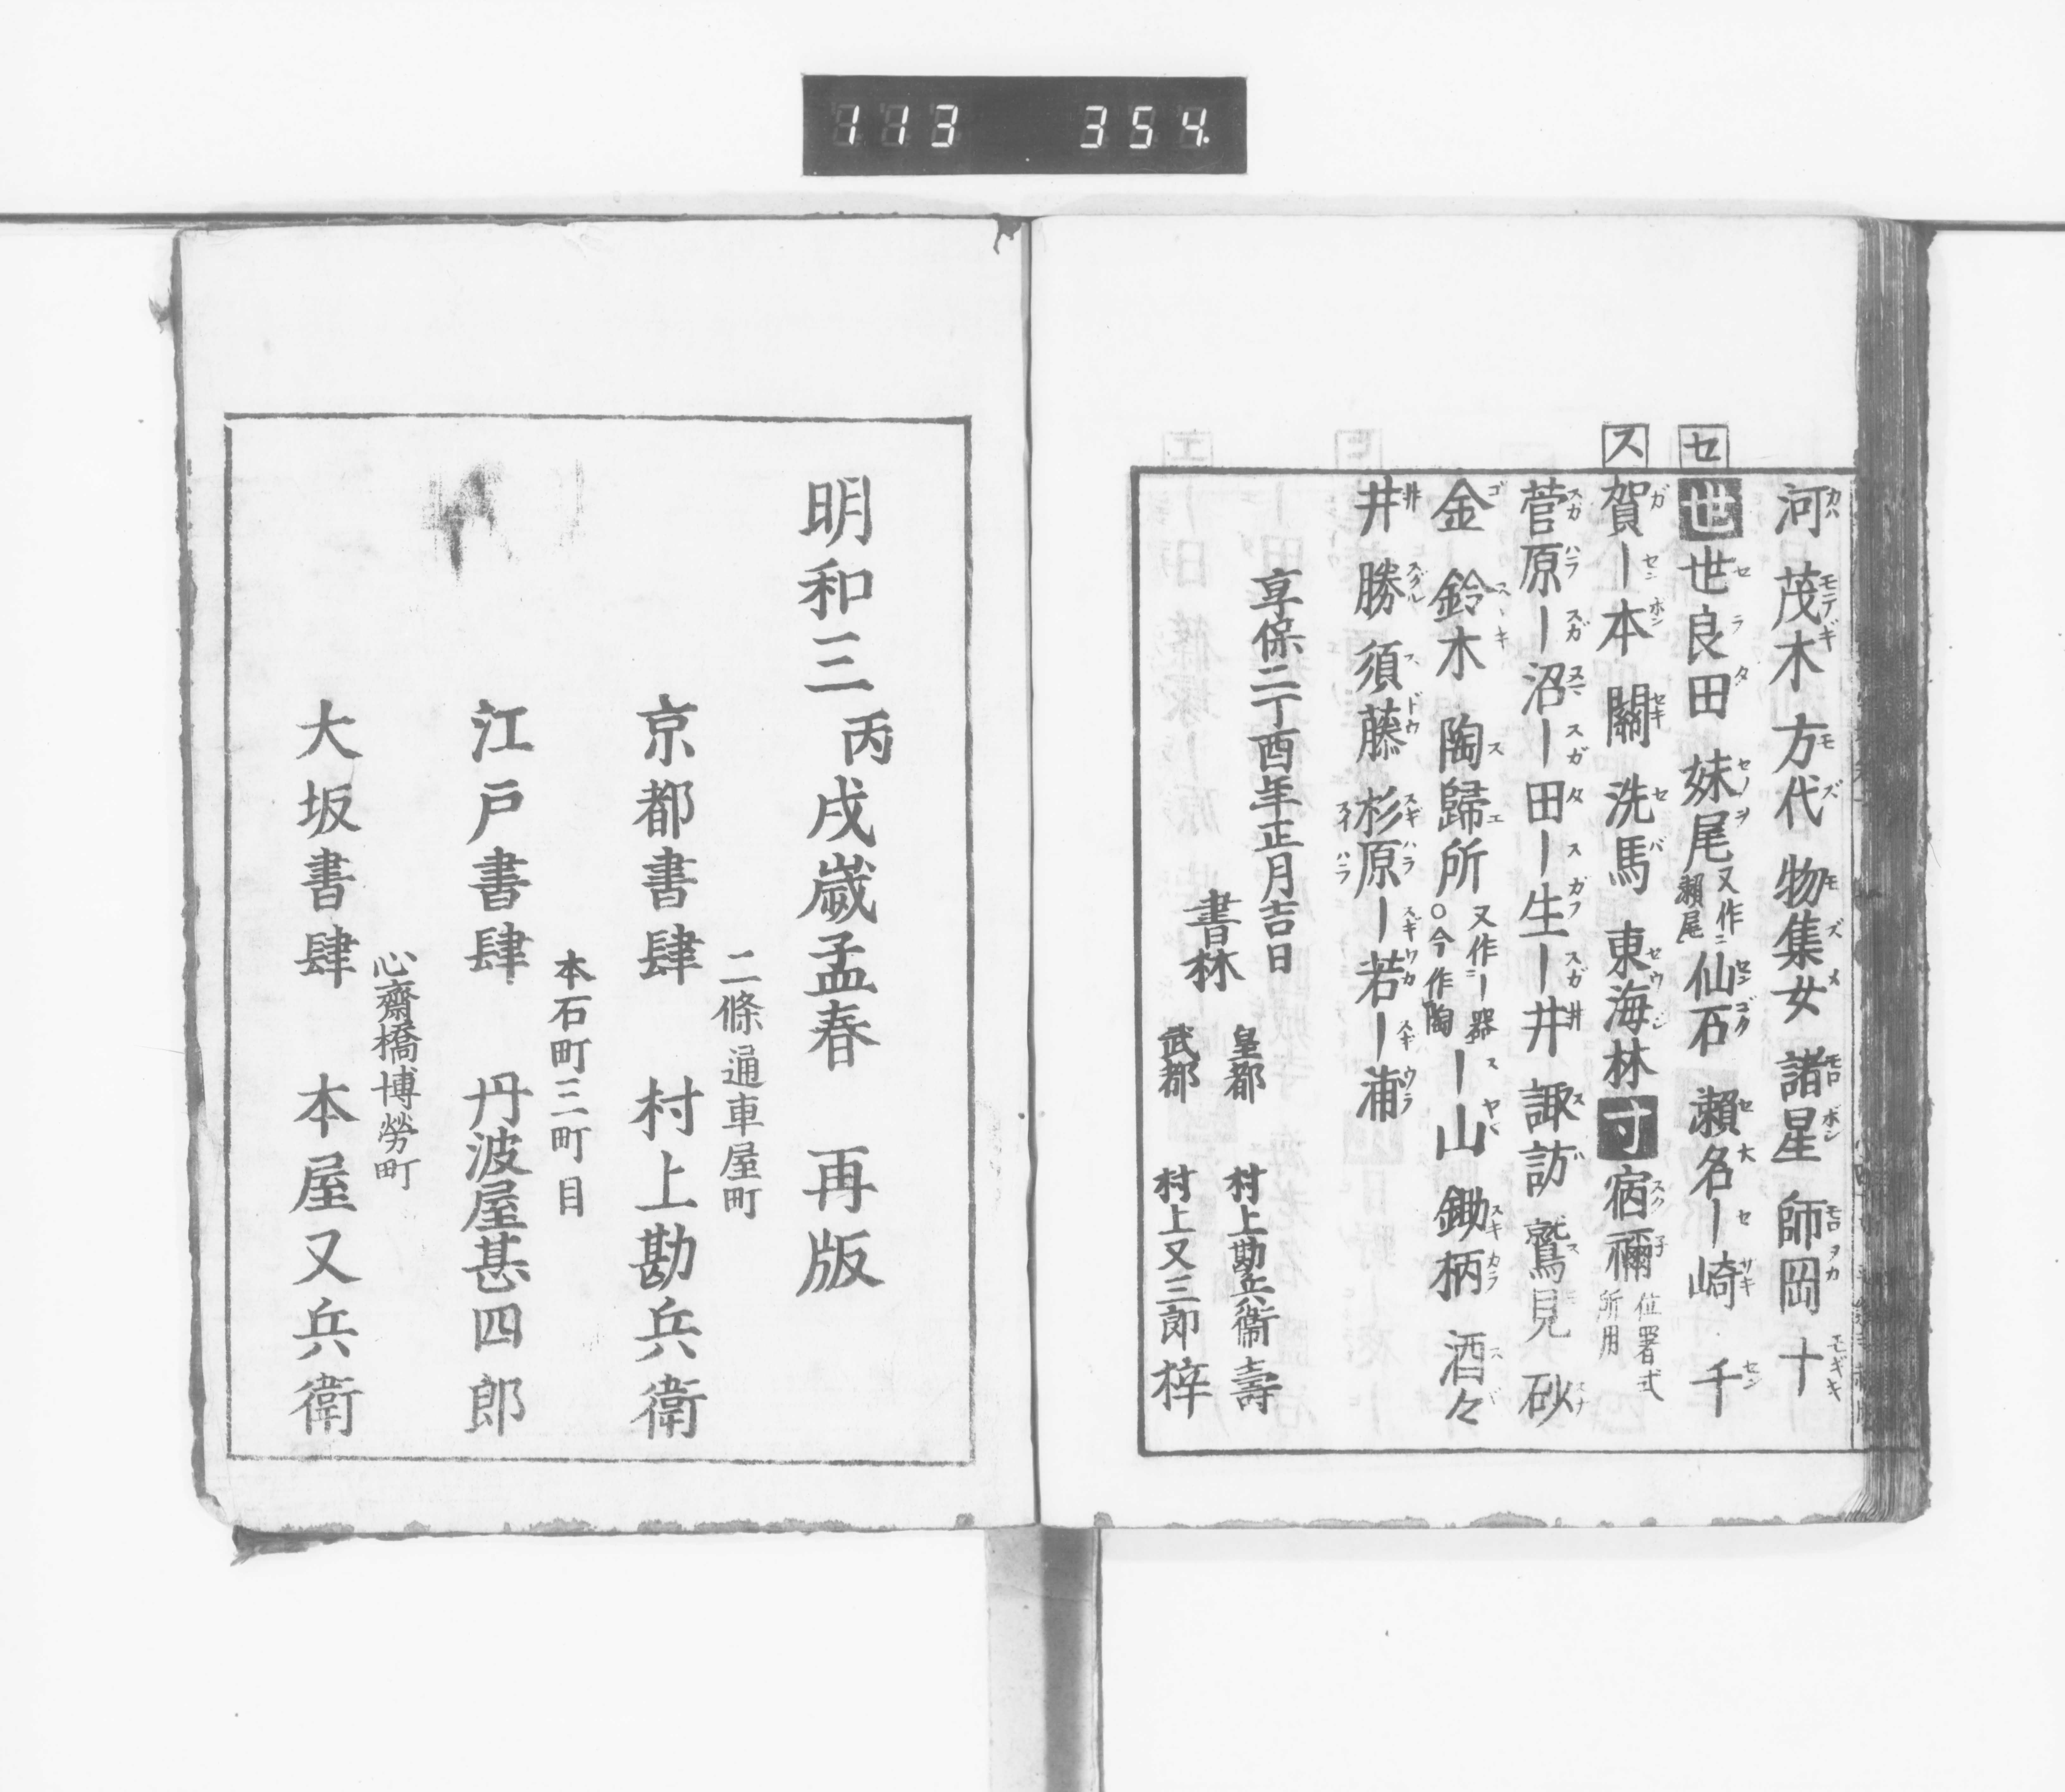 113 354.
セ
ス
河 茂木 方代 物集女 諸星 師岡 十
世 世良田 妹尾 又作二瀬尾 仙石 瀬名 ー崎 千
賀 ー本 關 洗馬 東海林 寸 宿禰 位署式所用
菅原 ー沼 ー田 ー生 ー井 諏訪 鷲見 砂
金 鈴木 陶 歸所 又作ニー器○今作陶 ー山 鋤柄 酒々
井 勝 須藤 杉原 ー若 ー浦
享保二丁酉年正月吉日
書林
皇都 村上勘兵衞 壽
武都 村上又三郎 梓
明和三丙戌歲孟春 再版
二條通車屋町
京都書肆 村上勘兵衛
本石町三町目
江戸書肆 丹波屋甚四郎
心齋橋博勞町
大坂書肆 本屋又兵衛